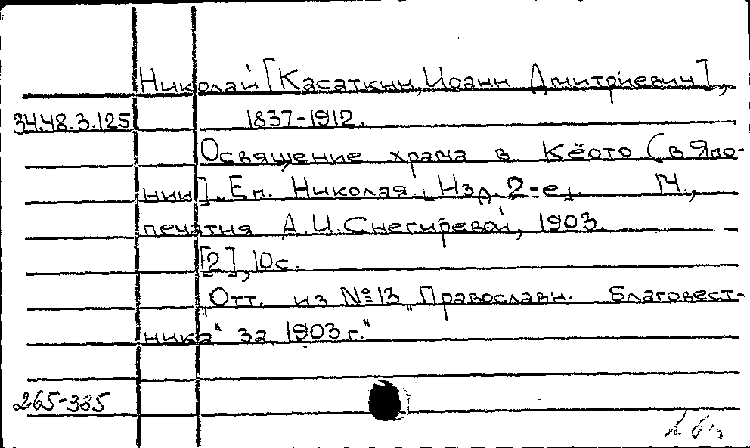 Николай [Касаткин, Иоанн Дмитриевич],
34.48.3.125 1837-1912.
Освящение храма в Кёото [в Япо-
нии]. Еп. Николая. Изд. 2-е. М.,
печатня А.И. Снегиревой, 1903.
[2], 10 с.
"Отт. из №13 "Православн. Благовест-
ника" за 1903 г."
265-385